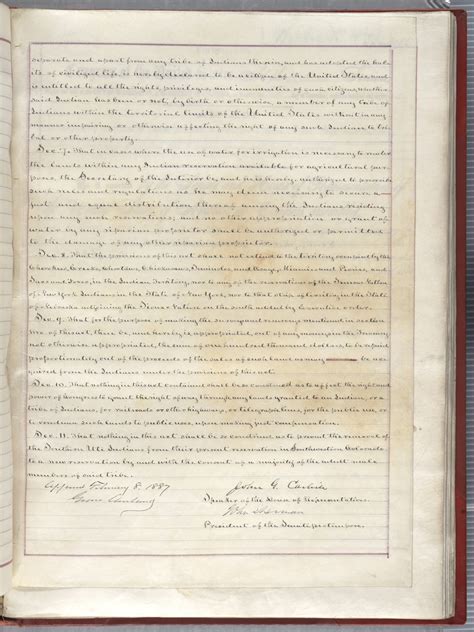 separate and apart from any tribe of Indians therein, and has adopted the hab-
its of civilized life, is hereby declared to be a citizen of the United States, and
is entitled to all the rights, privileges, and immunities of such citizens, whether
said Indian has been or not, by birth or otherwise, a member of any tribe of
Indians within the territorial limits of the United States without in any
manner impairing or otherwise affecting the right of any such Indian to tri-
bal or other property.
Sec. 7. That in cases where the use of water for irrigation is necessary to render
the lands within any Indian reservation available for agricultural pur-
poses, the Secretary of the Interior be, and he is hereby, authorized to prescribe
such rules and regulations as he may deem necessary to secure a
just and equal distribution thereof among the Indians residing
upon any such reservations; and no other appropriation or grant of
water by any riparian proprietor shall be authorized or permitted
to the damage of any other riparian proprietor.
Sec. 8. That the provisions of this act shall not extend to the territory occupied by the
Cherokees, Creeks, Choctaws, Chickasaws, Seminoles, and Osage, Miamies and Peorias, and
Sacs and Foxes, in the Indian Territory, nor to any of the reservations of the Seneca Nation
of New York Indians in the State of New York, nor to that strip of territory in the State
of Nebraska adjoining the Sioux Nation on the south added by executive order.
Sec. 9. That for the purpose of making the surveys and resurveys mentioned in section
two of this act, there be, and hereby is, appropriated, out of any moneys in the Treasury
not otherwise appropriated, the sum of one hundred thousand dollars, to be repaid
proportionately out of the proceeds of the sales of such land as may be ac-
quired from the Indians under the provisions of this act.
Sec. 10. That nothing in this act contained shall be so construed as to affect the right and
power of Congress to grant the right of way through any lands granted to an Indian, or a
tribe of Indians, for railroads or other highways, or telegraph lines, for the public use, or
to condemn such lands to public uses, upon making just compensation.
Sec. 11. That nothing in this act shall be so construed as to prevent the removal of
the Southern Ute Indians from their present reservation in Southwestern Colorado
to a new reservation by and with the consent of a majority of the adult male
members of said tribe.
Approved February 8, 1887
Grover Cleveland
John G. Carlisle
Speaker of the House of Representatives.
John Sherman
President of the Senate pro tempore.